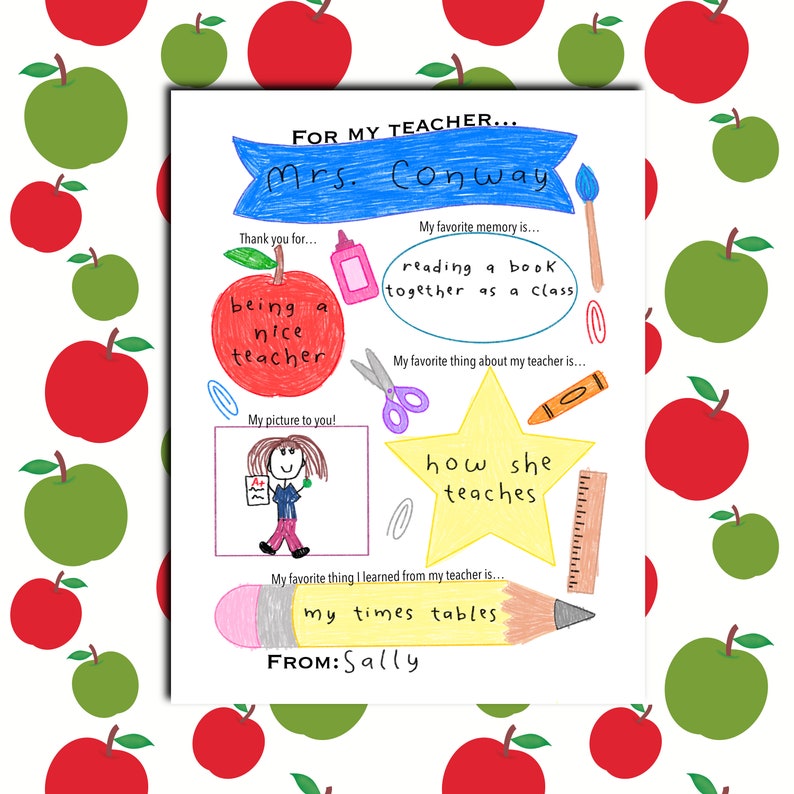 FOR MY TEACHER...
Mrs. Conway
Thank you for...
being a
nice
teacher
My favorite memory is...
reading a book
together as a class
My favorite thing about my teacher is...
how she
teaches
My picture to you!
A+
My favorite thing I learned from my teacher is...
my times tables
FROM: Sally